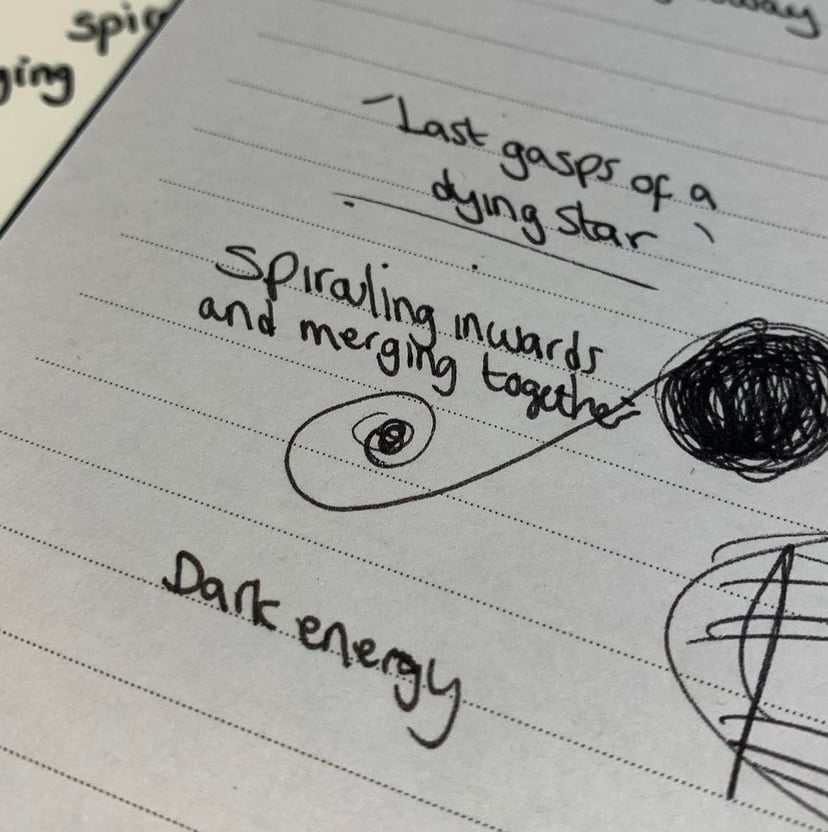 ging
Last gasps of a
dying star
Spiralling inwards
and merging together
Dark energy